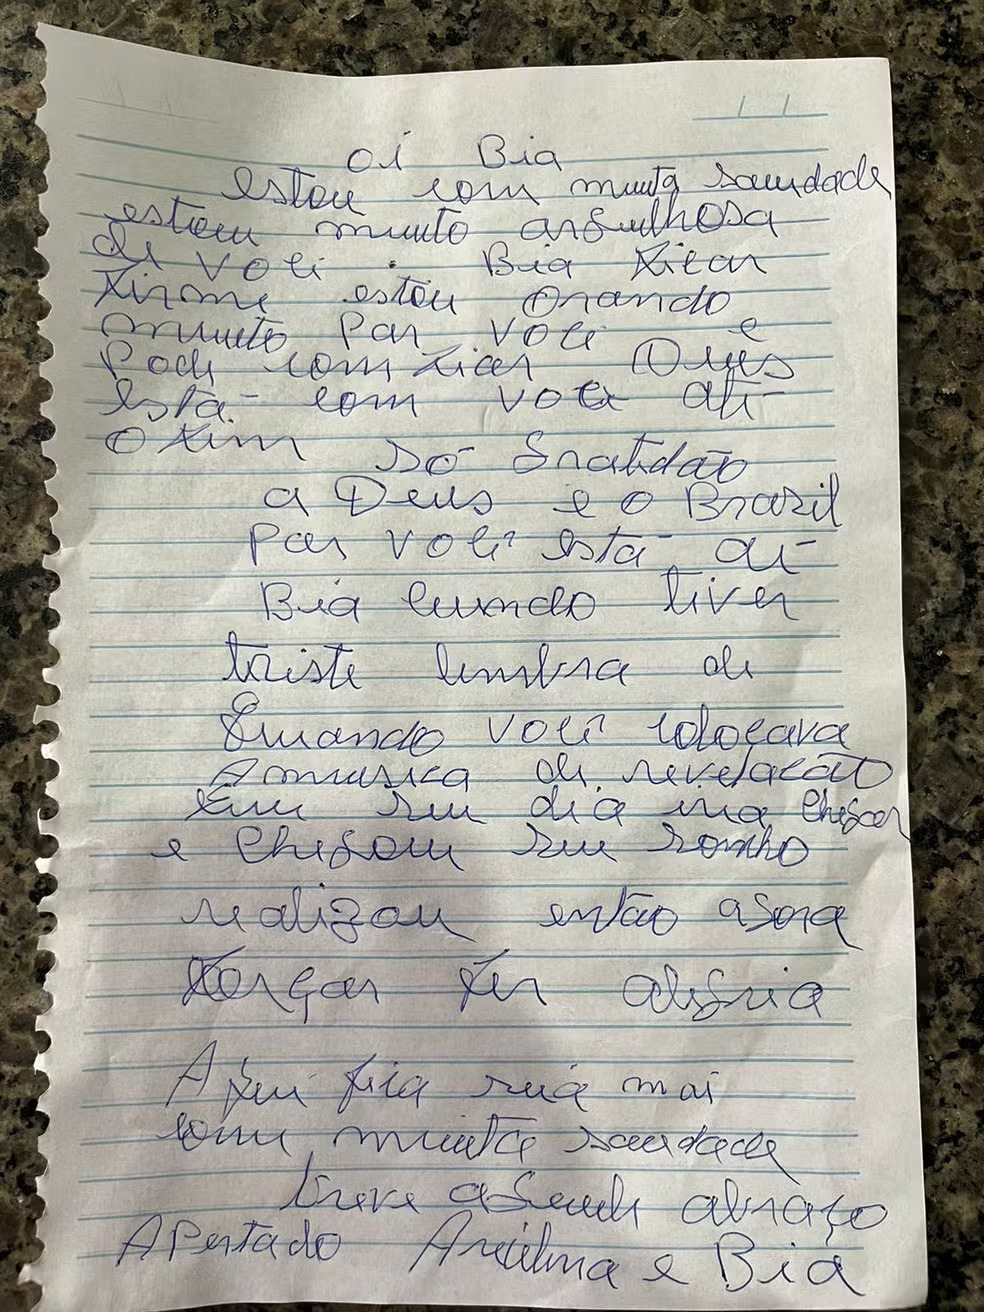 oi Bia
estou com muita saudade
estou muito orgulhosa
di voci. Bia ficar
firme estou orando
muito par voci e
Podi comfiar Deus
Está com voce ati
o fim só gratidão
a Deus e o Brazil
par voci está ai
Bia cuando tiver
triste limbra di
quando voci colocava
A musica di revelacão
seu dia ia chegar
e chegou seu sonho
realizou então agora
forças fer alegria
Aqui fica sua mai
com muita saudade
breve aquele abraço
Apertado e Bia